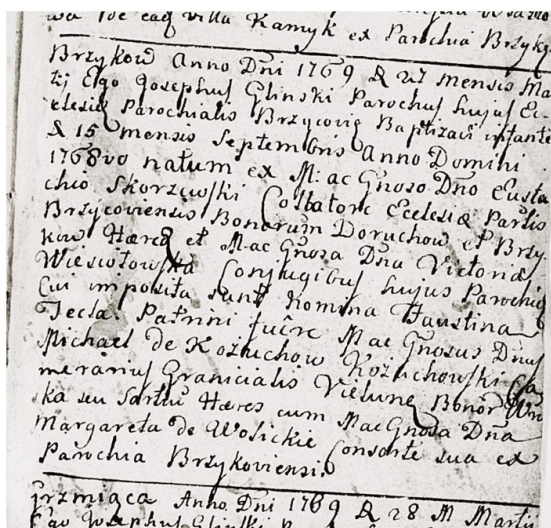 wa de eaq villa Kamyk ex Parochia Brzyky
Brzykow Anno Dni 1769 d 27 mensis Ma
tij Ego Josephus Glinski Parochus hujus Ec
clesiæ Parochialis Brzycovię Baptizavi infante
d 15 mensis Septembris Anno Domini
1768vo natum ex M: ac Gnoso Dno Eusta
chio Skorzewski Collatore Ecclesiæ Parlis
Brzycoviensis Bonorum Doruchow et Brzy
kow Hæred et Mac Gnosa Dna Victoria
Wiesiołowska Conjugibus hujus Parochię
Cui imposita sunt nomina Faustina
Tecla. Patrini fuêre Mac Gnosus Dnus
Michael de Kozuchow Kozuchowski Ca
merarius Granicialis Vielunę Bonor
ka seu Hæres cum Mac Gnosa Dna
Margareta de Wolickie Consorte sua ex
Parochia Brzykoviensi.
Grzmiąca Anno Dni 1769 d 28 M Martij
Ego Josephus Glinski